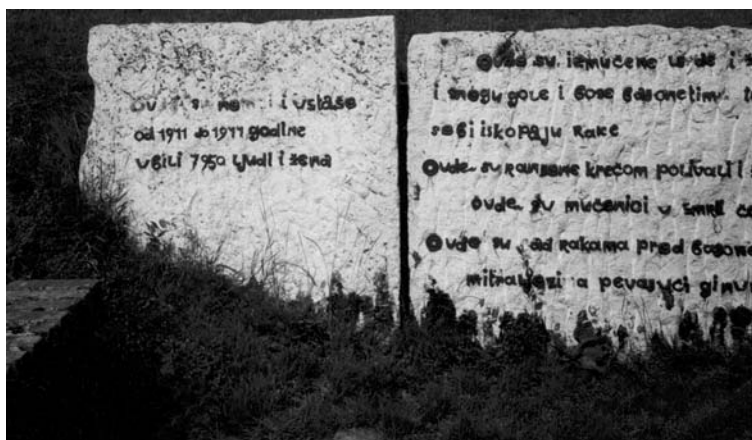 ovde su nemci i ustaše
od 1941 do 1944 godine
ubili 7950 ljudi i žena
Ovde su izmučene ljude i
i snegu gole i bose bajonetima
sebi iskopaju rake
Ovde su ranjene krečom polivali i
ovde su mučenici u smrt
Ovde su nad rakama pred bajone
mitraljezima pevajući